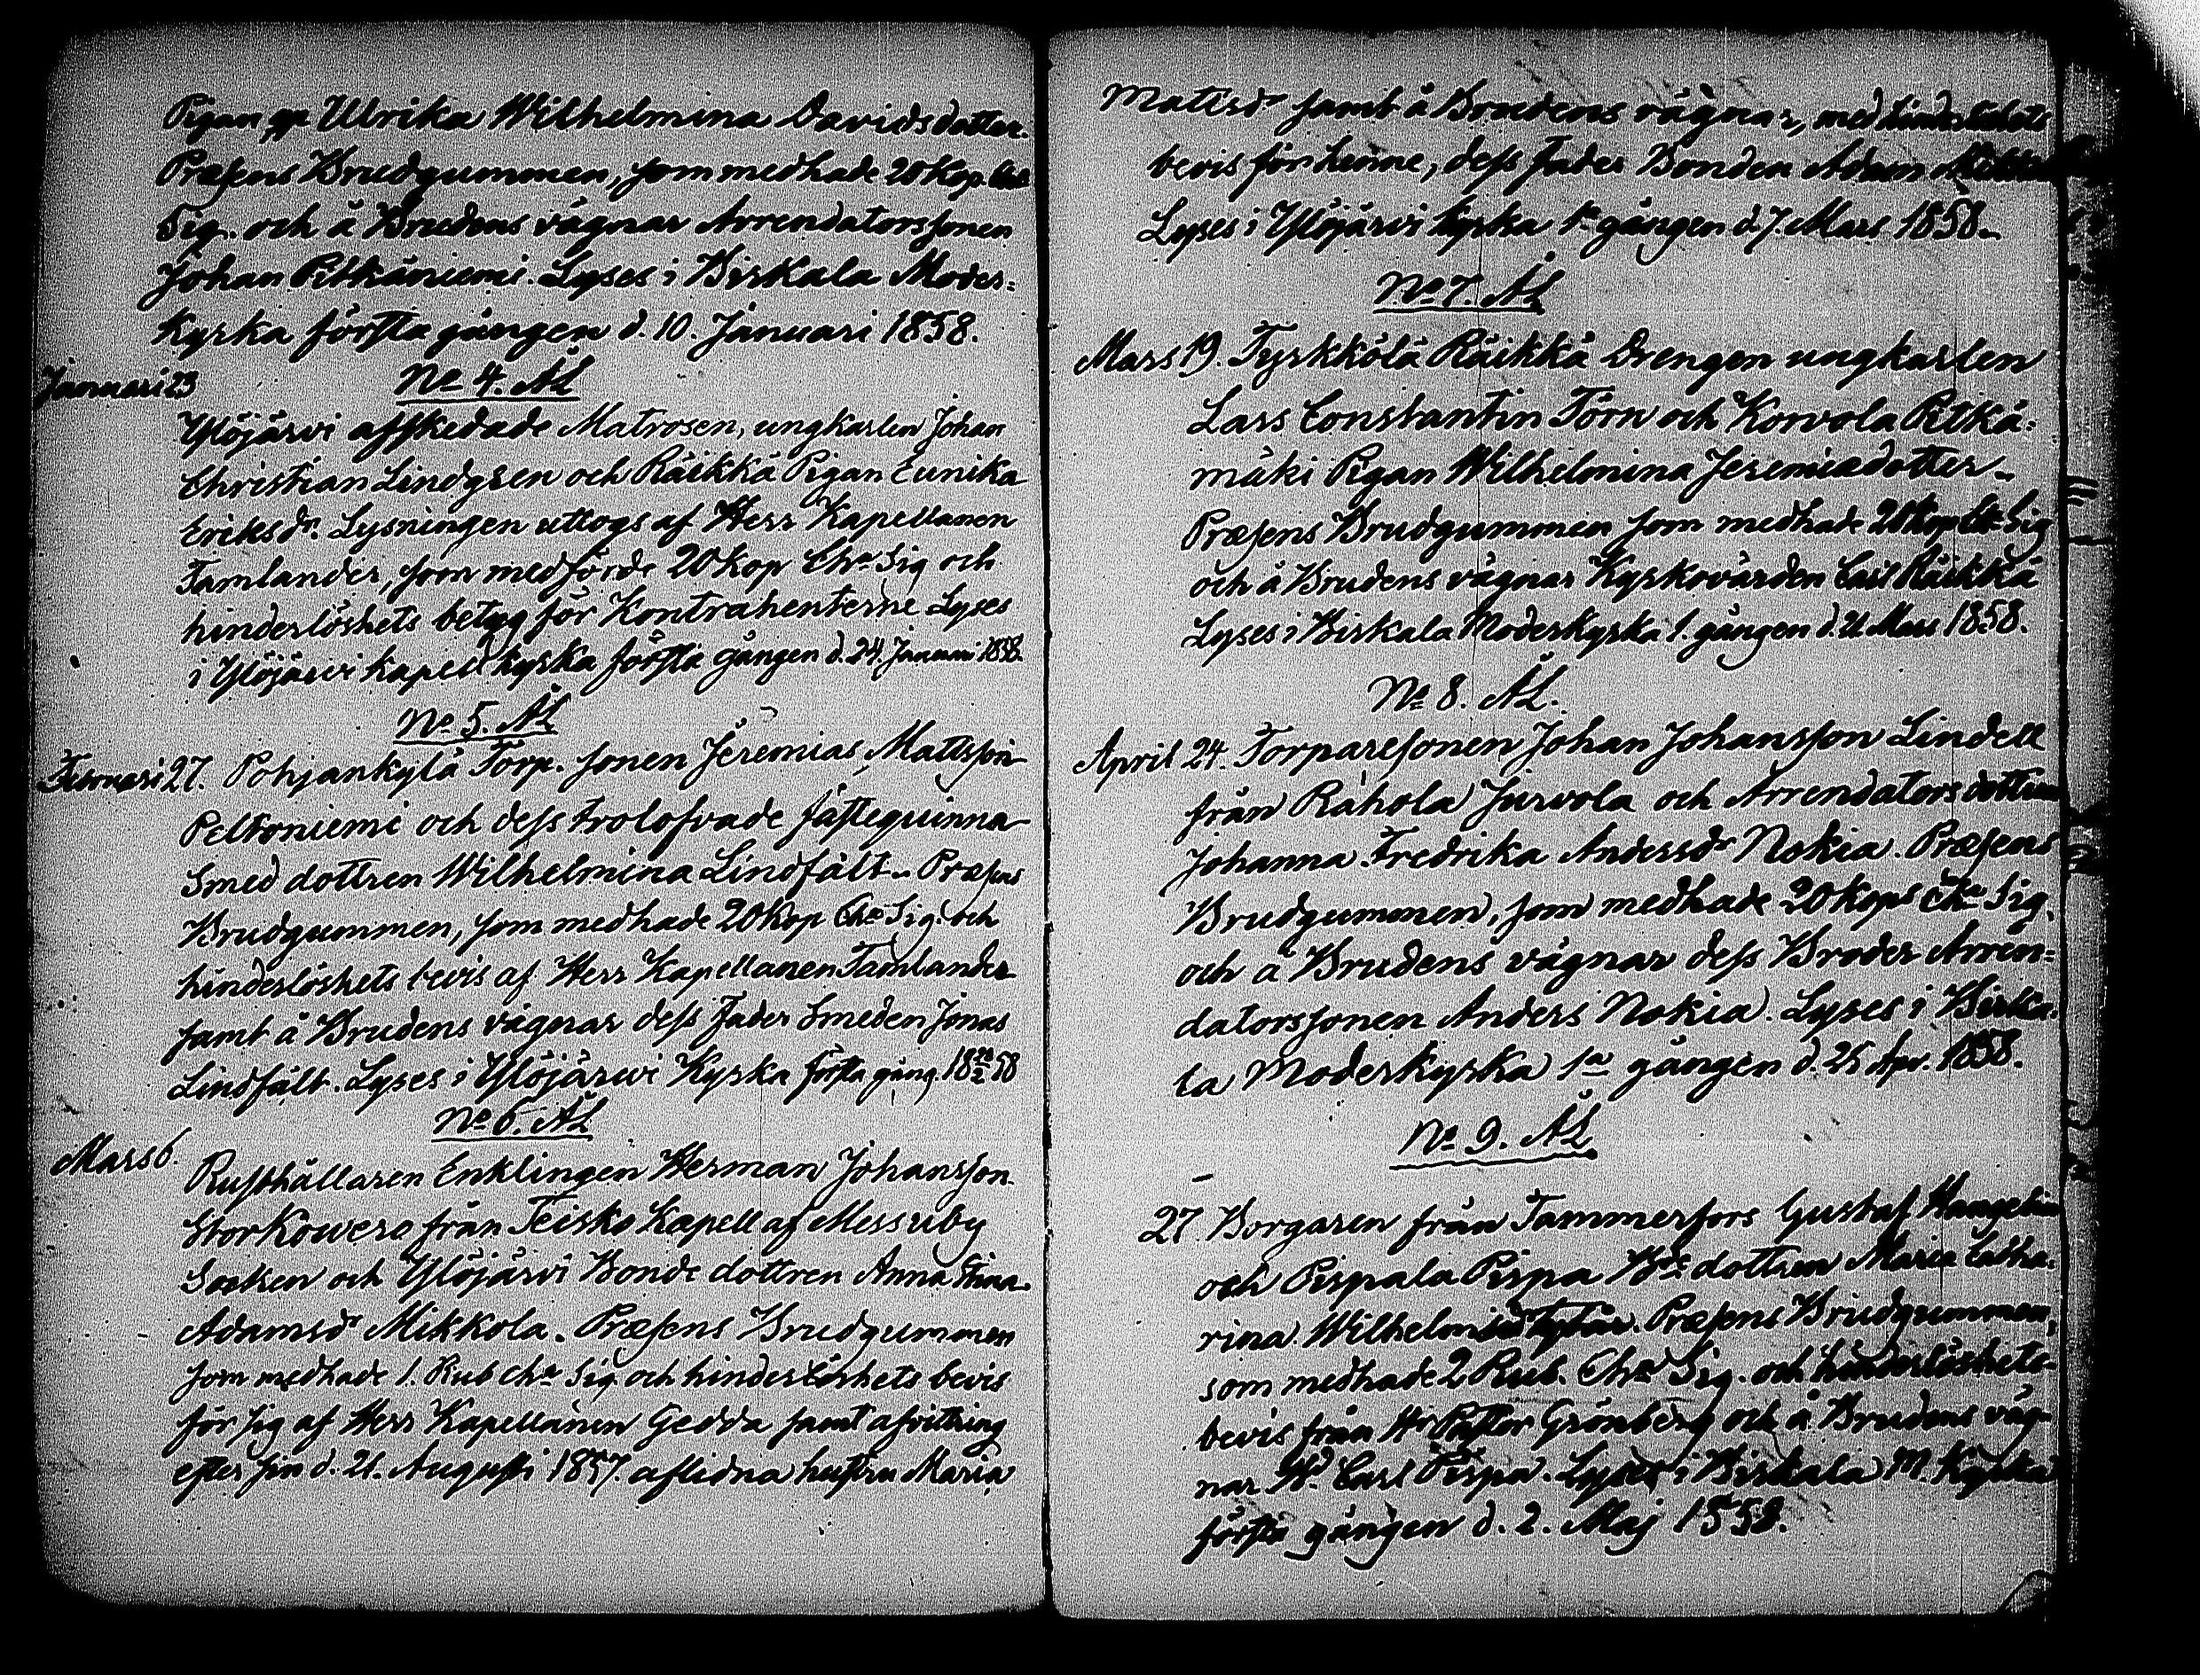 Pigan Ulrika Wilhelmina Davidsdotter.
Præsens Brudgummen, som medhade 20 Kop.
Sig. och å Brudens vägnar Arrendatorssonen
Johan Pitkäniemi. Lyses i Birkala Moder=
kyrka första gången d. 10. Januari 1858.
No 4. ÅL
Januari 23
Ylöjärvi afskedade Matrosen, ungkarlen Johan
Christian Lindgren och Räikkä Pigan Eunika
Eriksdr. Lysningen uttogs af Herr Kapellanen
Tamlander, som medförde 20 kop Cha Sig och
hinderlöshets betyg för Kontrahenterne Lyses
i Ylöjärvi kapell kyrka första gången d. 24. Januari 1858.
No 5. ÅL
Februari 27. Pohjankylä Torp. sonen Jeremias Mattsson
Peltoniemi och dess trolofvade fästequinna
Smed dottren Wilhelmina Lindfält. Præsens
Brudgummen, som medhade 20 Kop Cha Sig. och
hinderlöshets bevis af Herr Kapellanen Tamlander
samt å Brudens vägnar dess Fader Smeden Jonas
Lindfält. Lyses i Ylöjärvi Kyrka första gång. 18 28/2 58
No 6. ÅL
Mars 6.
Rusthållaren Enklingen Herman Johansson
Storkowero från Teisko Kapell af Messuby
Socken och Ylöjärvi Bonde dottren Anna Stina
Adamsdr Mikkola. Præsens Brudgummen
som medhade 1. Rub cha Sig och hinderlöshets bevis
för sig af Herr Kapellanen Gedda samt afvittring
efter sin d. 21. Augusti 1857. aflidna hustru Maria
Mattsdr samt å Brudens vägnar, med hinderlöshets
bevis för henne, dess Fader Bonden Adam
Lyses i Ylöjärvi kyrka 1a gången d. 7. Mars 1858.
No 7. ÅL
Mars 19. Tyrkkölä Räikkä Drengen ungkarlen
Lars Constantin Törn och Korvola Pitkä=
mäki Pigan Wilhelmina Jeremiædotter.
Præsens Brudgummen som medhade 20 kop Cha Sig
och å Brudens vägnar Kyrkovärden Carl Räikkä
Lyses i Birkala Moderkyrka 1. gången d. 21 Mars 1858.
No 8. ÅL.
April 24. Torparesonen Johan Johansson Lindell
från Rahola Jurvola och Arrendators dottren
Johanna Fredrika Andersdr Nokia. Præsens
Brudgummen, som medhade 20 Kops Cha Sig.
och å Brudens vägnar dess Broder Arren=
datorssonen Anders Nokia. Lyses i Birka=
la Moderkyrka 1a gången d. 25 Apr. 1858.
No 9. ÅL
27. Borgaren från Tammerfors Gustaf
och Pispala Pispa Bde dottren Maria Catha=
rina Wilhelmsdotter. Præsens Brudgummen,
som medhade 2 Rub. Cha Sig. och hinderlöshets
bevis från Hr Pastor Grönberg och å Brudens väg
nar Bd. Carl Pispa. Lyses i Birkala M. Kyrka
första gången d. 2. Maj 1858.